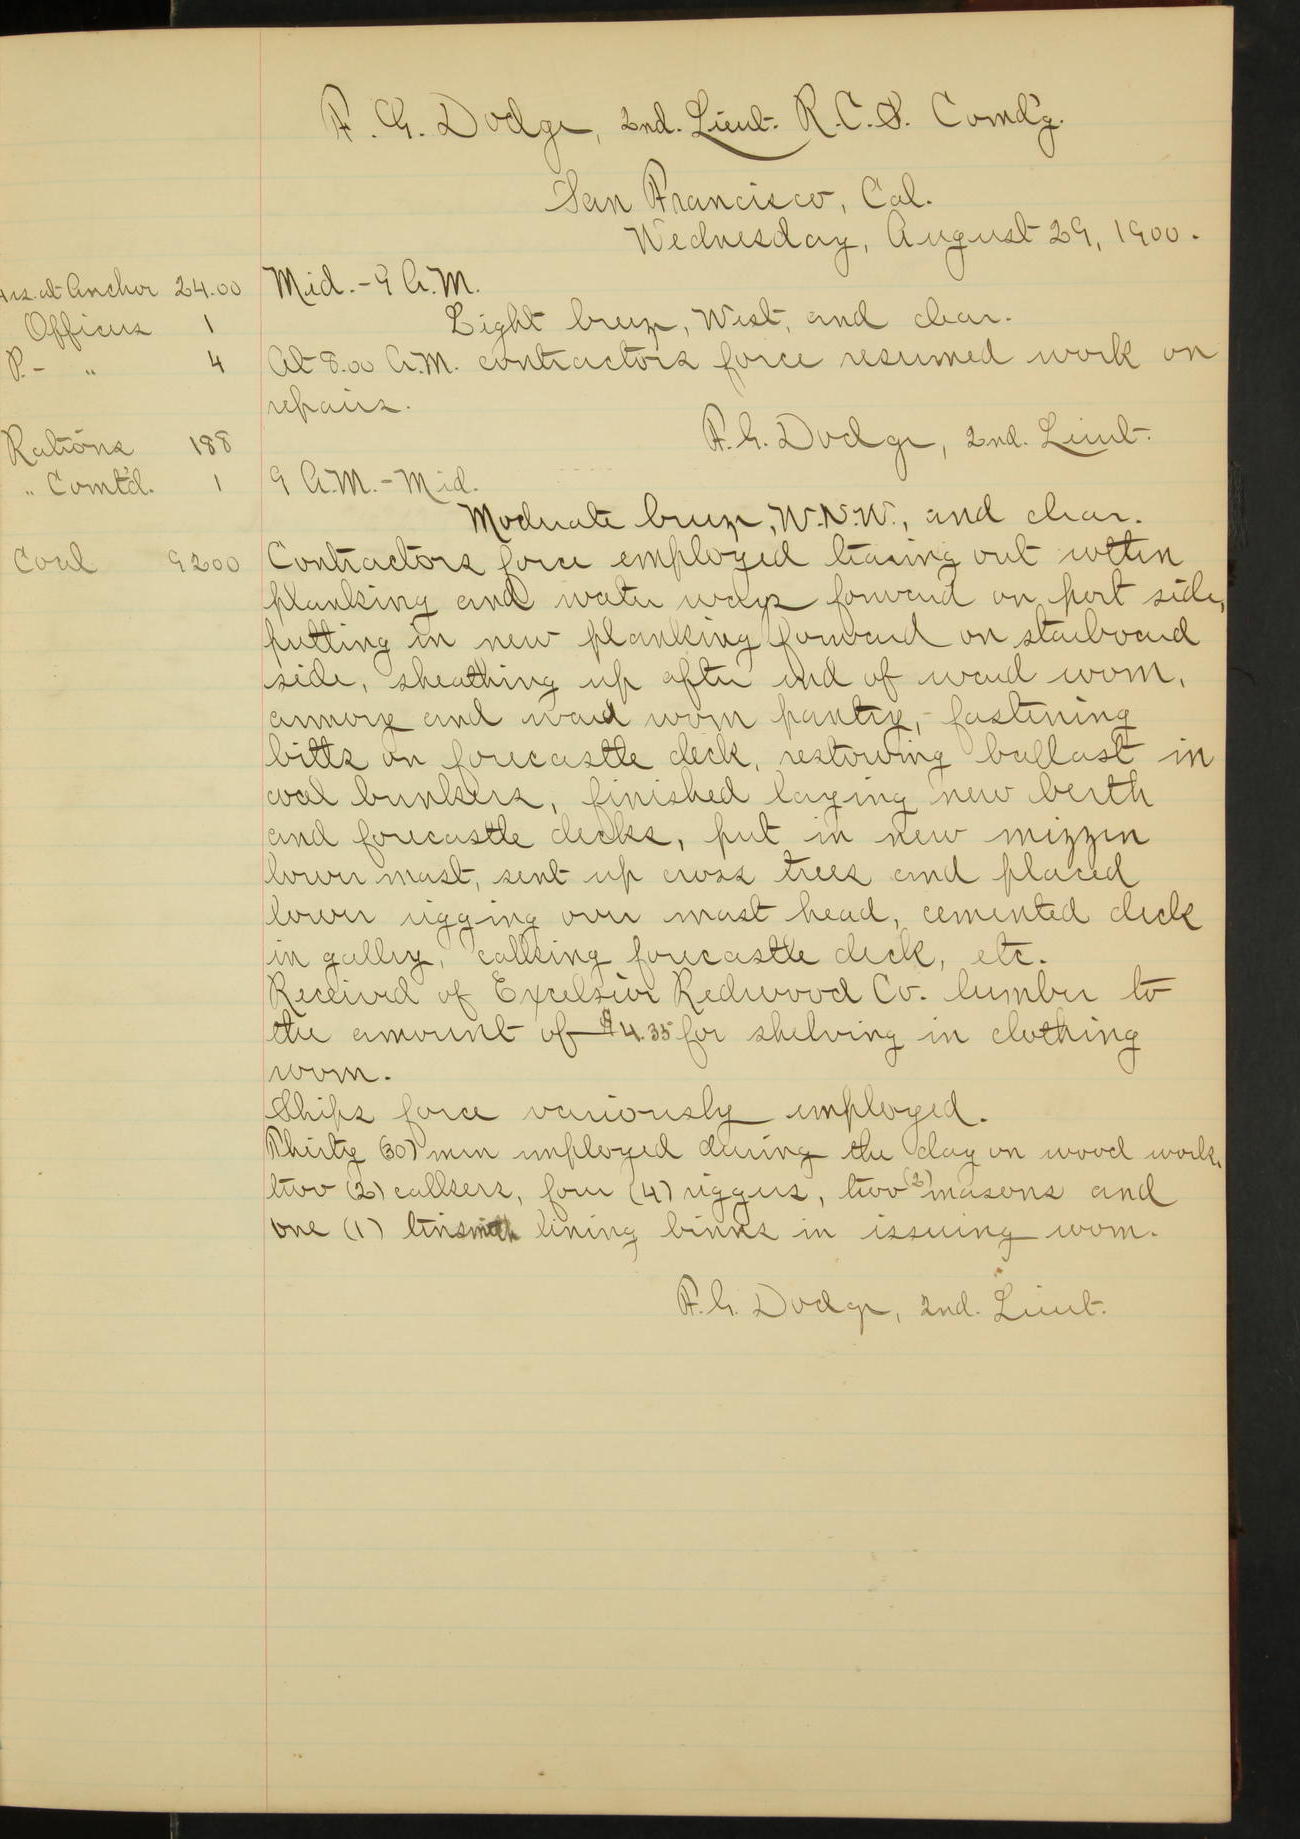 F. G. Dodge, 2nd. Lieut. R.C.S. Comd'g.
San Francisco, Cal.
Wednesday, August 29, 1900.
Hrs. at Anchor 24.00 Mid. - 9 A.M.
Officers 1 Light breeze, West, and clear.
P. - " 4 At 8.00 A.M. contractors force resumed work on
repairs.
Rations 188 F. G. Dodge, 2nd. Lieut.
" Comt'd. 1 9 A.M. - Mid.
Moderate breeze, W.N.W., and clear.
Coal 9200 Contractors force employed tearing out rotten
planking and water ways forward on port side,
putting in new planking forward on starboard
side, sheathing up after end of ward room,
armory and ward room pantry, - fastening
bitts on forecastle deck, restowing ballast in
coal bunkers, finished laying new berth
and forecastle decks, put in new mizzen
lower mast, sent up cross trees and placed
lower rigging over mast head, cemented deck
in galley, calking forecastle deck, etc.
Received of Excelsior Redwood Co. lumber to
the amount of $4.35 for shelving in clothing
room.
Ships force variously employed.
Thirty (30) men employed during the day on wood work,
two (2) calkers, four (4) riggers, two (2) masons and
one (1) tinsmith lining binns in issuing room.
F. G. Dodge, 2nd. Lieut.